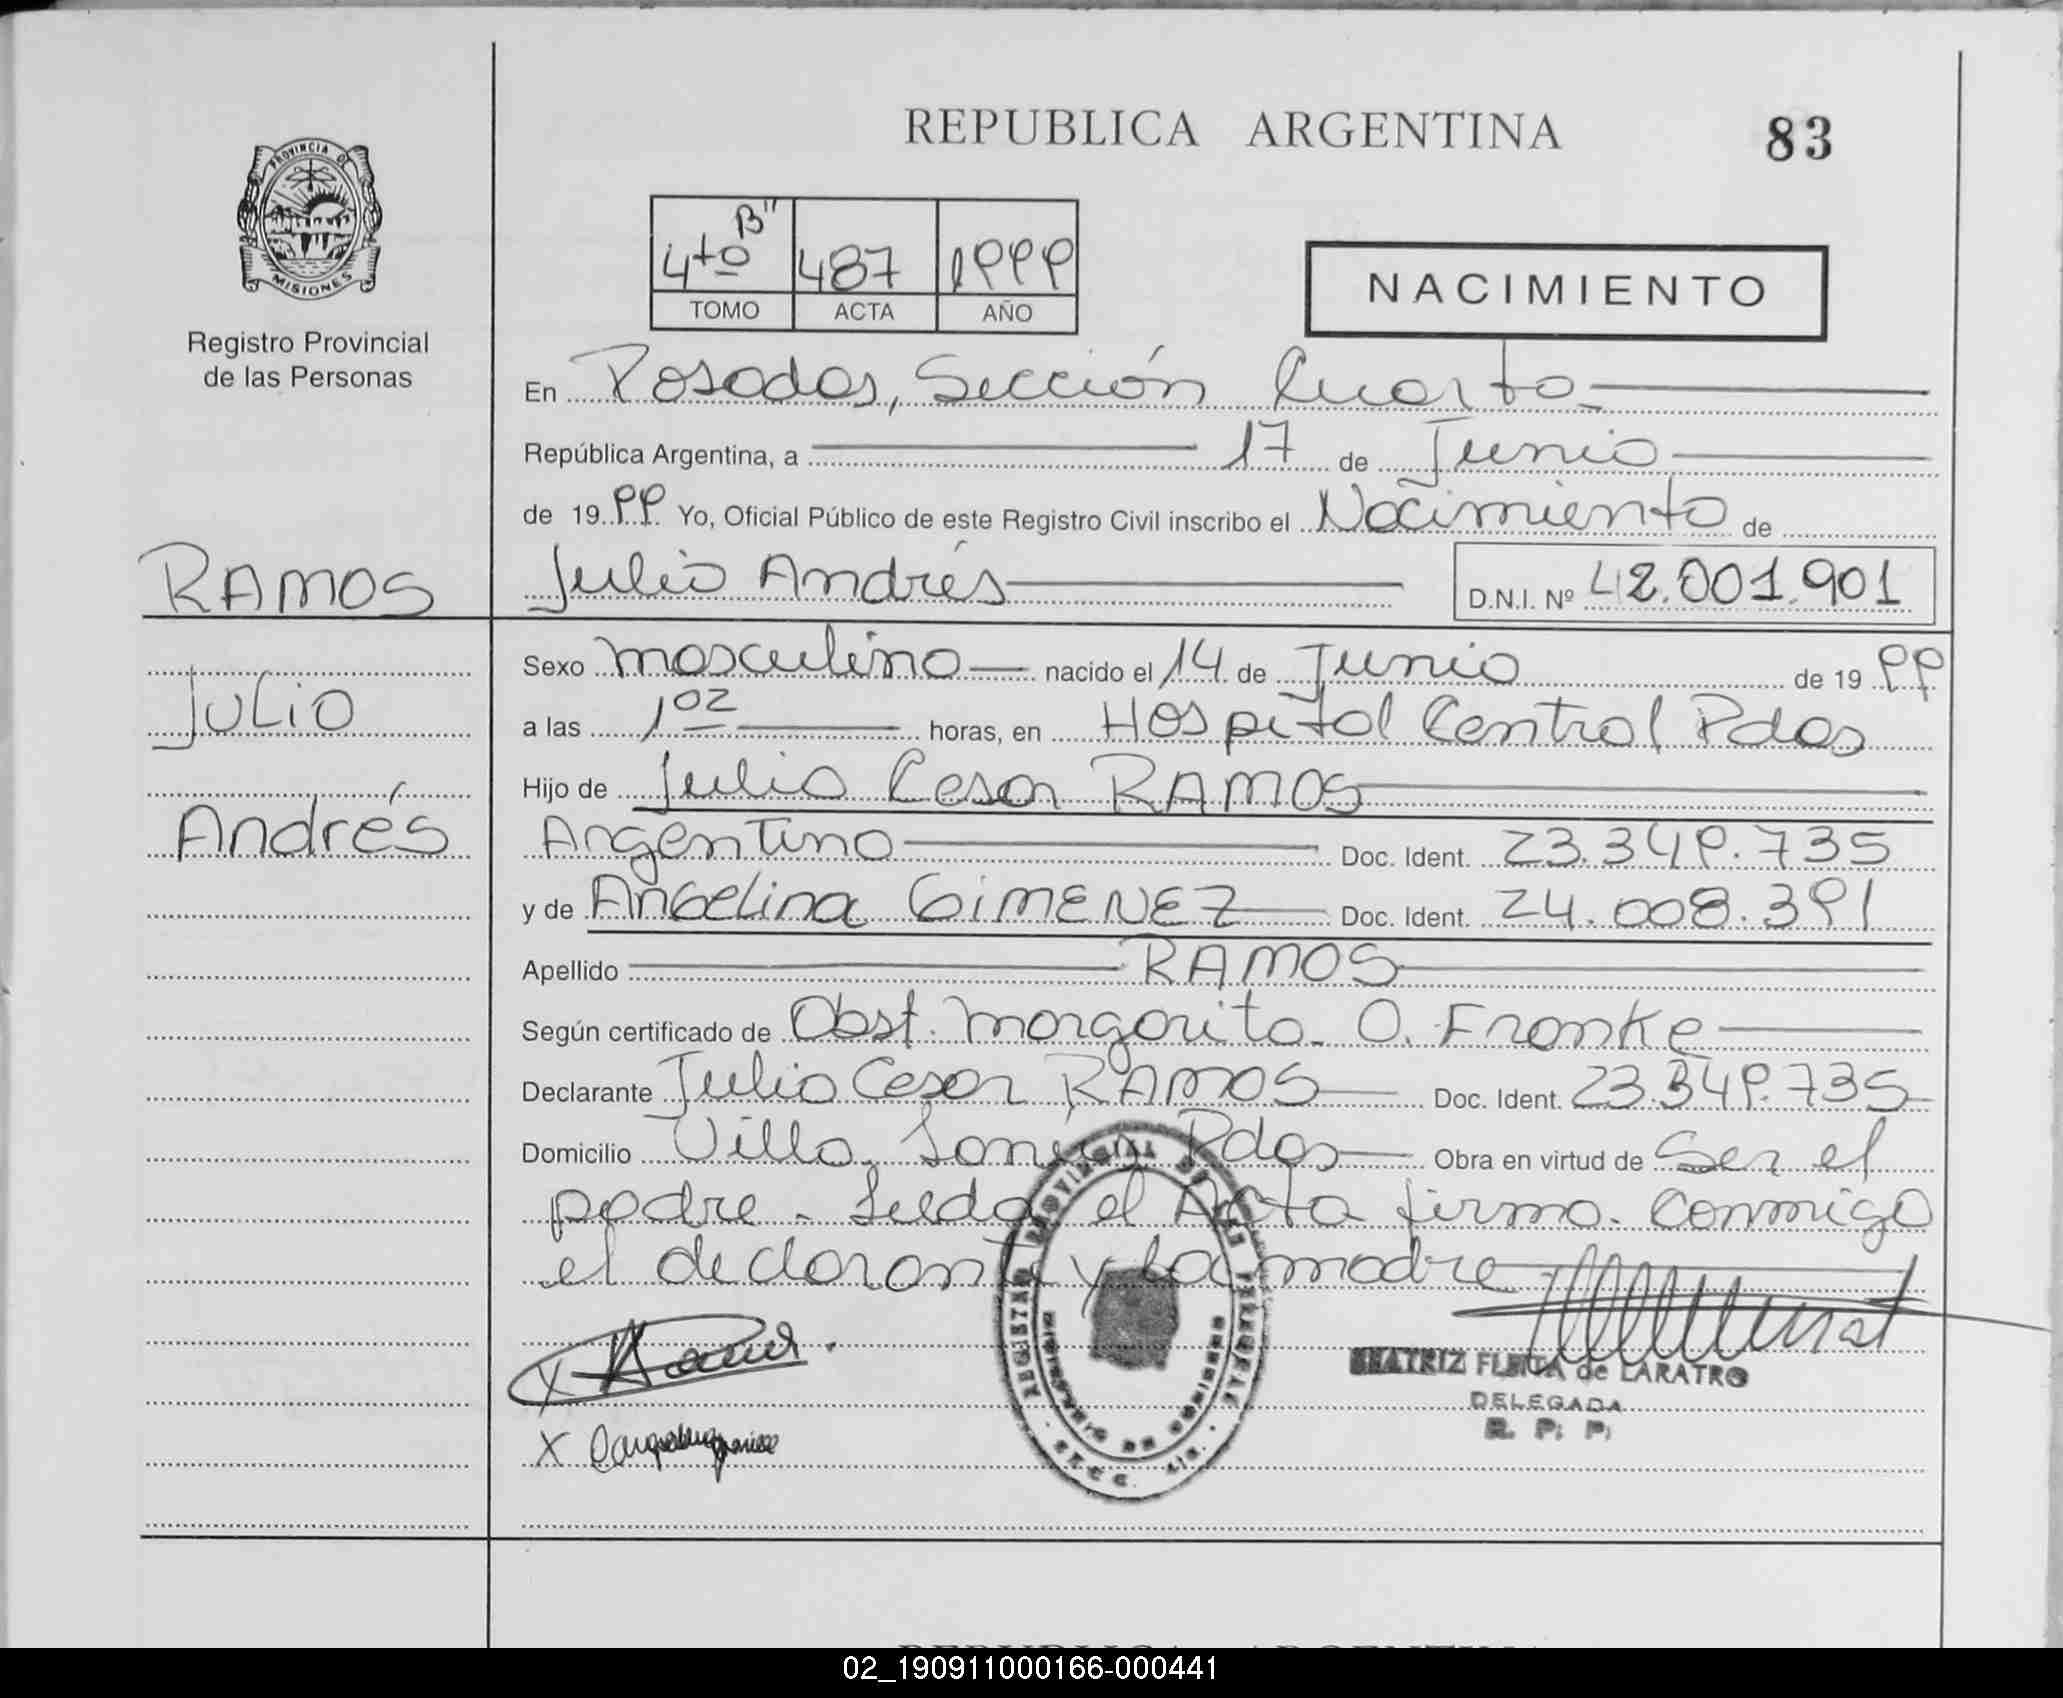 REPUBLICA ARGENTINA
83
PROVINCIA DE
MISIONES
Registro Provincial
de las Personas
4to B"
487
1999
TOMO
ACTA
AÑO
NACIMIENTO
En Posadas, Sección Cuarta
República Argentina, a 17 de Junio
de 1999 Yo, Oficial Público de este Registro Civil inscribo el Nacimiento de
RAMOS
Julio Andrés D.N.I. Nº 42.001.901
Sexo masculino nacido el 14 de Junio de 1999
Julio
a las 1 02 horas, en Hospital Central Pdas
Hijo de Julio Cesar RAMOS
Andrés
Argentino Doc. Ident. 23.349.735
y de Angelina GIMENEZ Doc. Ident. 24.008.391
Apellido RAMOS
Según certificado de Obst. Margarita O. Franke
Declarante Julio Cesar RAMOS Doc. Ident. 23.349.735
Domicilio Villa Sonia, Pdas Obra en virtud de Ser el
padre. Leída el Acta firma conmigo
el declarante y la madre
REGISTRO PROVINCIAL DE LAS PERSONAS
BEATRIZ FLEITA de LARATRO
DELEGADA
R. P. P.
02_190911000166-000441